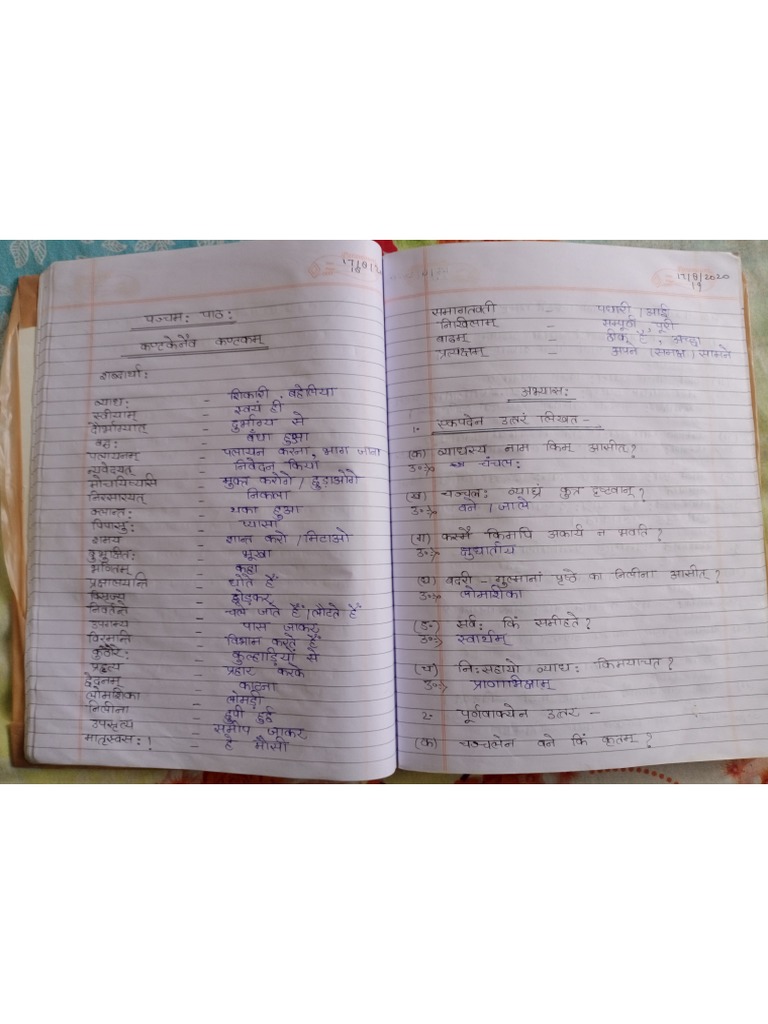 पञ्चमः पाठः
कण्टकेनैव कण्टकम्
शब्दार्थाः
व्याधः - शिकारी, बहेलिया
स्वीयाम् - स्वयं की
दौर्भाग्यात् - दुर्भाग्य से
बद्धः - बँधा हुआ
पलायनम् - पलायन करना, भाग जाना
न्यवेदयत् - निवेदन किया
मोचयिष्यसि - मुक्त करोगे / छुड़ाओगे
निरसारयत् - निकाला
क्लान्तः - थका हुआ
पिपासुः - प्यासा
शमय - शान्त करो / मिटाओ
बुभुक्षितः - भूखा
भणितम् - कहा
प्रक्षालयन्ति - धोते हैं
विसृज्य - छोड़कर
निवर्तन्ते - चले जाते हैं / लौटते हैं
उपगम्य - पास जाकर
विरमन्ति - विश्राम करते हैं
कुठारैः - कुल्हाड़ियों से
प्रहृत्य - प्रहार करके
छेदनम् - काटना
लोमशिका - लोमड़ी
निलीना - छुपी हुई
उपसृत्य - समीप जाकर
मातृस्वसः! - हे मौसी
17/8/2020
समागतवती - पधारी / आई
निखिलाम् - सम्पूर्ण, पूरी
बाढम् - ठीक है, अच्छा
प्रत्यक्षम् - अपने (समक्ष) सामने
अभ्यासः
1. एकपदेन उत्तरं लिखत -
(क) व्याधस्य नाम किम् आसीत्?
उ०:> चंचलः
(ख) चञ्चलः व्याघ्रं कुत्र दृष्टवान्?
उ०:> वने / जाले
(ग) कस्मै किमपि अकार्यं न भवति?
उ०:> क्षुधार्ताय
(घ) बदरी - गुल्मानां पृष्ठे का निलीना आसीत्?
उ०:> लोमशिका
(ङ) सर्वः किं समीहते?
उ०:> स्वार्थम्
(च) निःसहायो व्याधः किमयाचत?
उ०:> प्राणभिक्षाम्
2. पूर्णवाक्येन उत्तर -
(क) चञ्चलेन वने किं कृतम्?